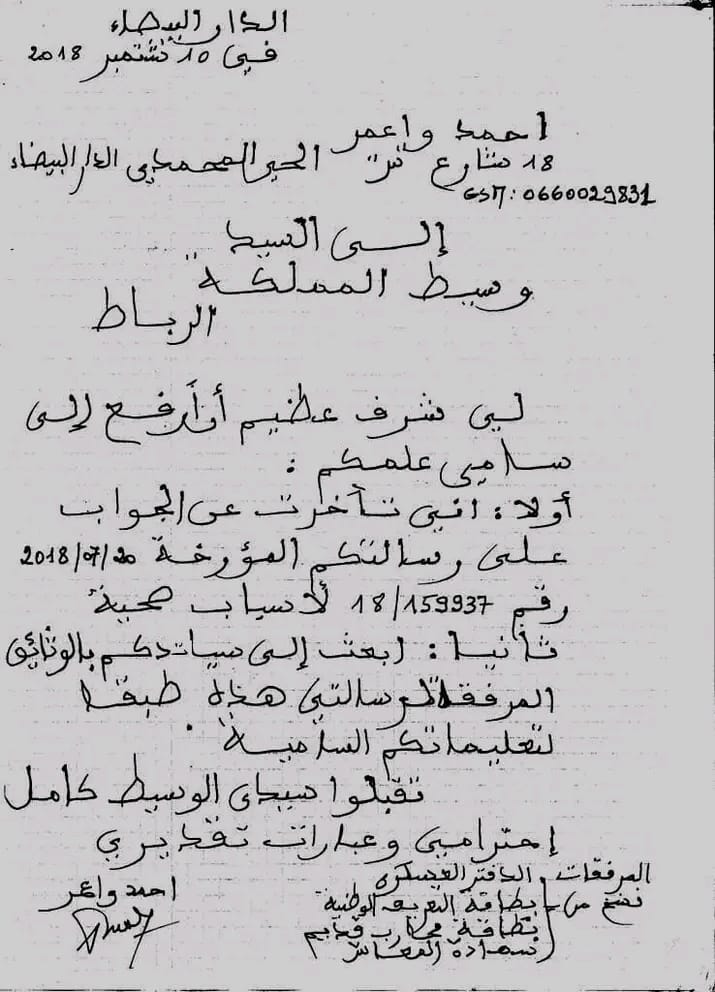 الدار البيضاء
في 10 شتمبر 2018
احمد واعمر
18 شارع "س" الحي المحمدي الدار البيضاء
GSM: 0660029831
إلى السيد
وسيط المملكة
الرباط
لي شرف عظيم أن أرفع إلى
سامي علمكم :
أولا : انني تأخرت عن الجواب
على رسالتكم المؤرخة 2018/07/20
رقم 18/159937 لأسباب صحية
ثانيا : ابعث إلى سيادتكم بالوثائق
المرفقة لرسالتي هذه طبقا
لتعليماتكم السامية
تقبلوا سيدي الوسيط كامل
إحترامي وعبارات تقديري
احمد واعمر
المرفقات . الدفتر العسكري
نسخ من بطاقة التعريف الوطنية
بطاقة محارب قديم
شهادة المعاش